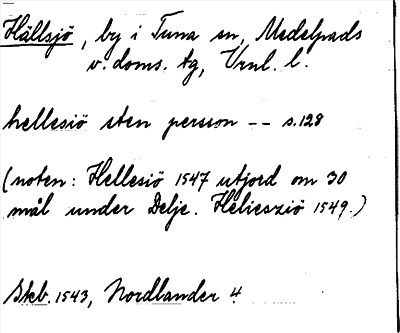 Hällsjö, by i Tuna sn, Medelpads
v. doms. tg, Vrnl. l.
hellesiö sten persson -- s.128
(noten: Hellesiö 1547 utjord om 30
mål under Delje. Heliesziö 1549.)
Skb. 1543, Nordlander 4